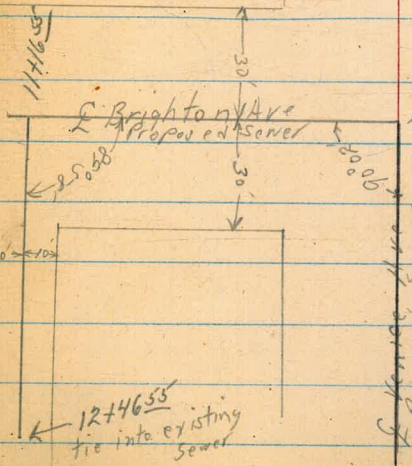 11+16 55
30'
℄ Brighton Ave
Proposed sewer
90°02'
30'
10'
12+46 55
tie into existing
sewer